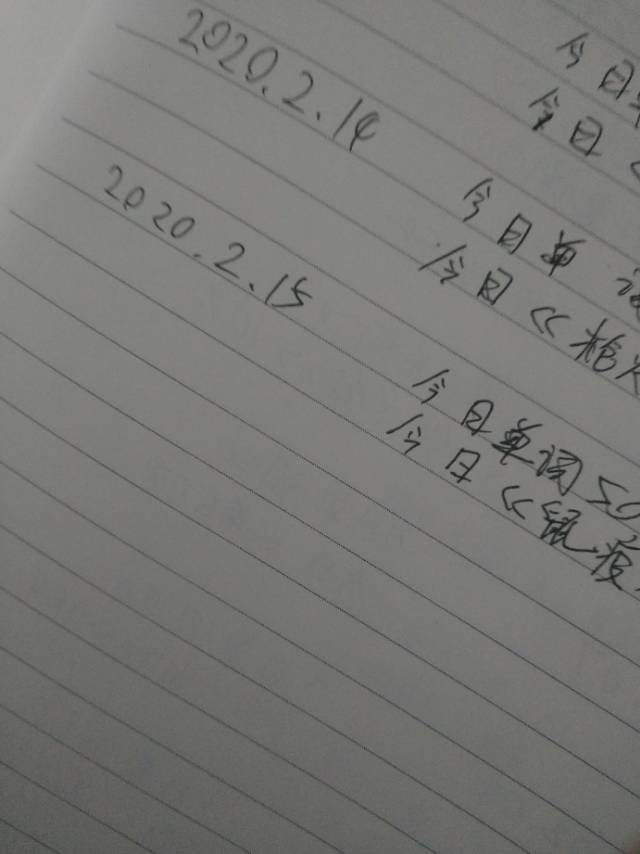 今日单
今日《
2020.2.14
今日单词
今日《枪
2020.2.15
今日单词50
今日《鼠疫